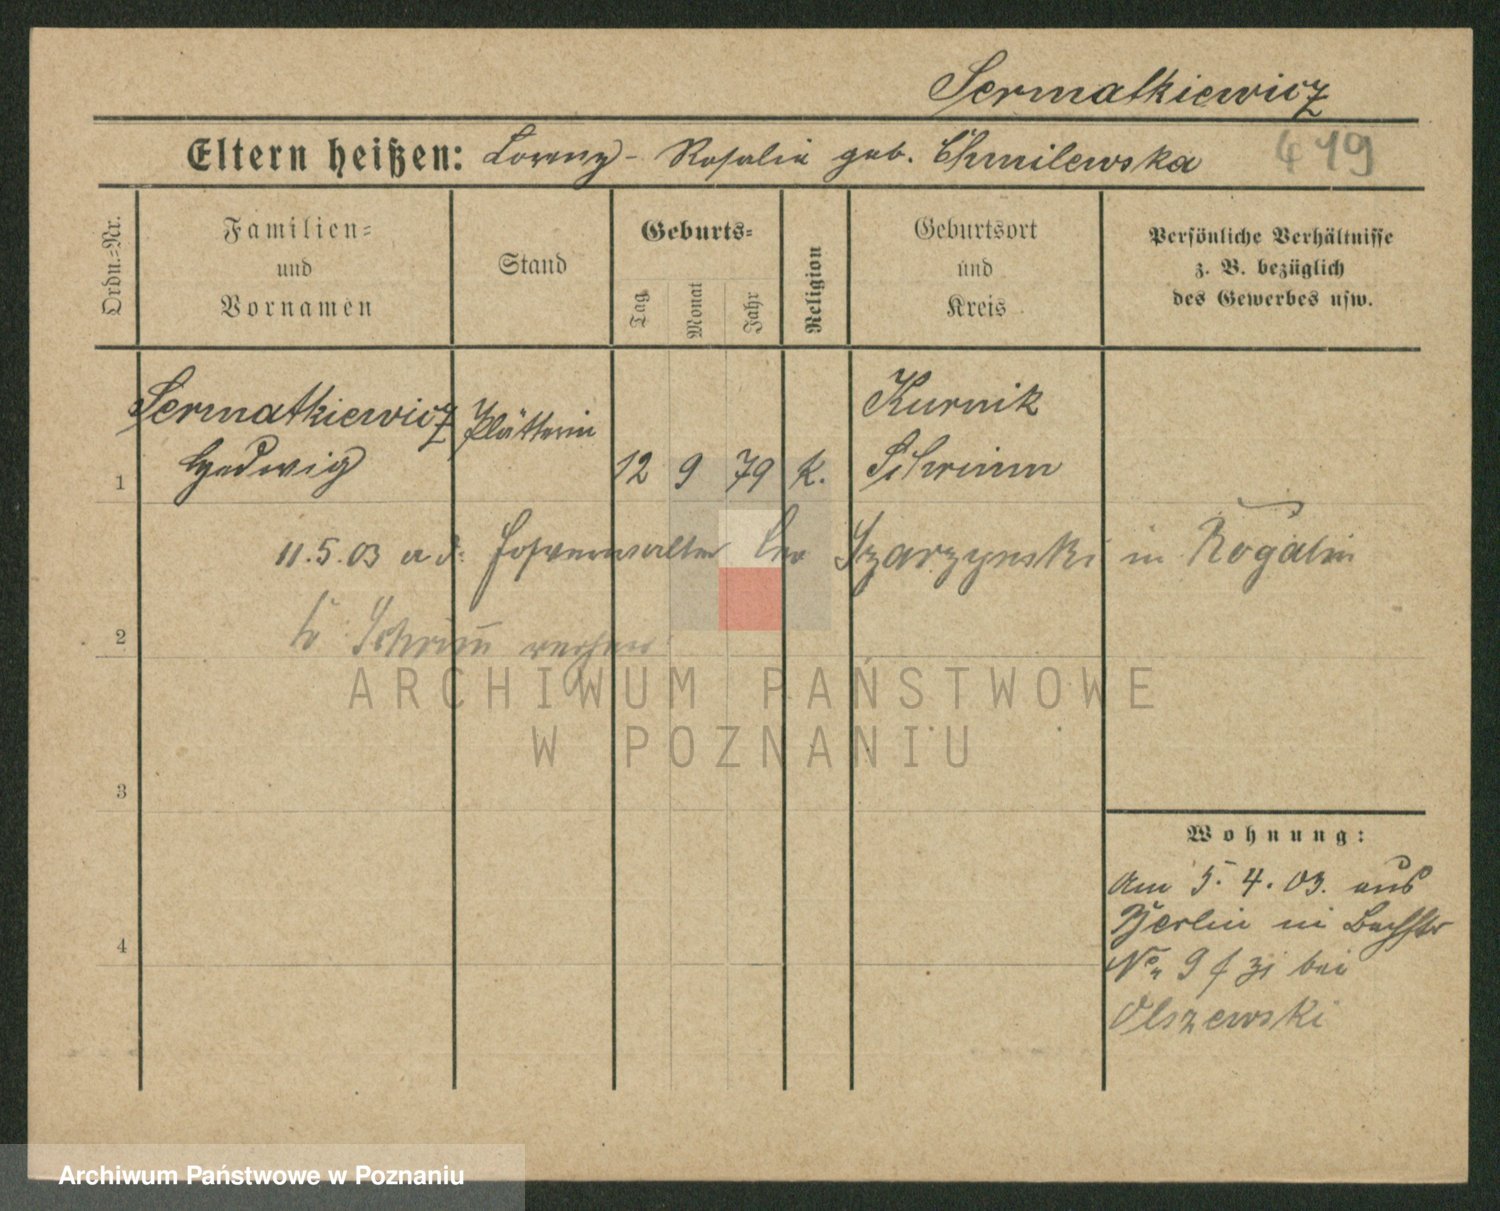 Sermatkiewicz
Eltern heißen: Lorenz - Rosalie geb. Chmilewska
419
Ordn.-Nr.
Familien-
und
Vornamen
Stand
Geburts-
Tag
Monat
Jahr
Religion
Geburtsort
und
Kreis
Persönliche Verhältnisse
z. B. bezüglich
des Gewerbes usw.
Sermatkiewicz Plätterin Kurnik
1 Hedwig 12 9 79 k. Schrimm
11.5.03 a d. Hofverwalter Leo Szarzynski in Rogalin
2 Kr Schrimm verzogen
ARCHIWUM PAŃSTWOWE
W POZNANIU
3
Wohnung:
Am 5. 4. 03. aus
Berlin in Bachstr
4
No 9 bei
Olszewski
Archiwum Państwowe w Poznaniu